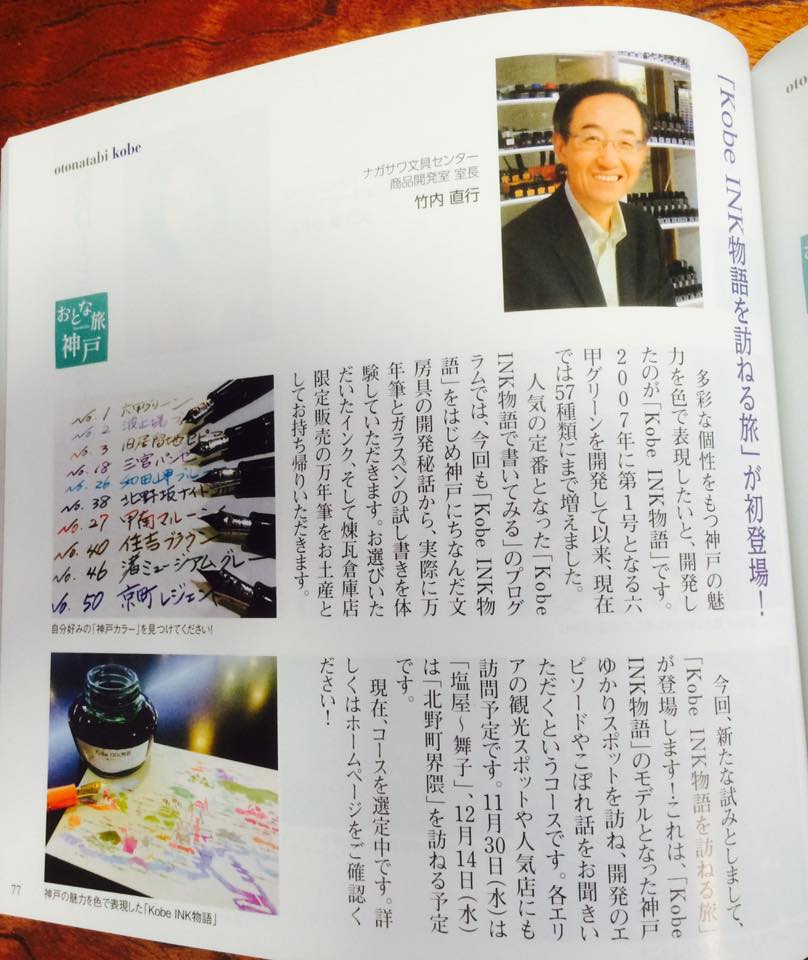 otonatabi kobe
「Kobe INK物語を訪ねる旅」が初登場！
ナガサワ文具センター
商品開発室 室長
竹内 直行
おとな旅
神戸
多彩な個性をもつ神戸の魅
力を色で表現したいと、開発し
たのが「Kobe INK物語」です。
2007年に第1号となる六
甲グリーンを開発して以来、現在
では57種類にまで増えました。
人気の定番となった「Kobe
INK物語で書いてみる」のプログ
ラムでは、今回も「Kobe INK物
語」をはじめ神戸にちなんだ文
房具の開発秘話から、実際に万
年筆とガラスペンの試し書きを体
験していただきます。お選びいた
だいたインク、そして煉瓦倉庫店
限定販売の万年筆をお土産と
してお持ち帰りいただきます。
今回、新たな試みとしまして、
「Kobe INK物語を訪ねる旅」
が登場します！これは、「Kobe
INK物語」のモデルとなった神戸
ゆかりスポットを訪ね、開発のエ
ピソードやこぼれ話をお聞きい
ただくというコースです。各エリ
アの観光スポットや人気店にも
訪問予定です。11月30日（水）は
「塩屋～舞子」、12月14日（水）
は「北野町界隈」を訪ねる予定
です。
現在、コースを選定中です。詳
しくはホームページをご確認く
ださい！
No. 1 六甲グリーン
No. 2 波止場ブ
No. 3 旧居留地セピア
No. 18 三宮パンセ
No. 26 和田岬ブルー
No. 38 北野坂ナイト
No. 27 甲南マルーン
No. 40 住吉ブラウン
No. 46 渚ミュージアムグレー
No. 50 京町レジェント
自分好みの「神戸カラー」を見つけてください！
Kobe INK物語
神戸の魅力を色で表現した「Kobe INK物語」
77